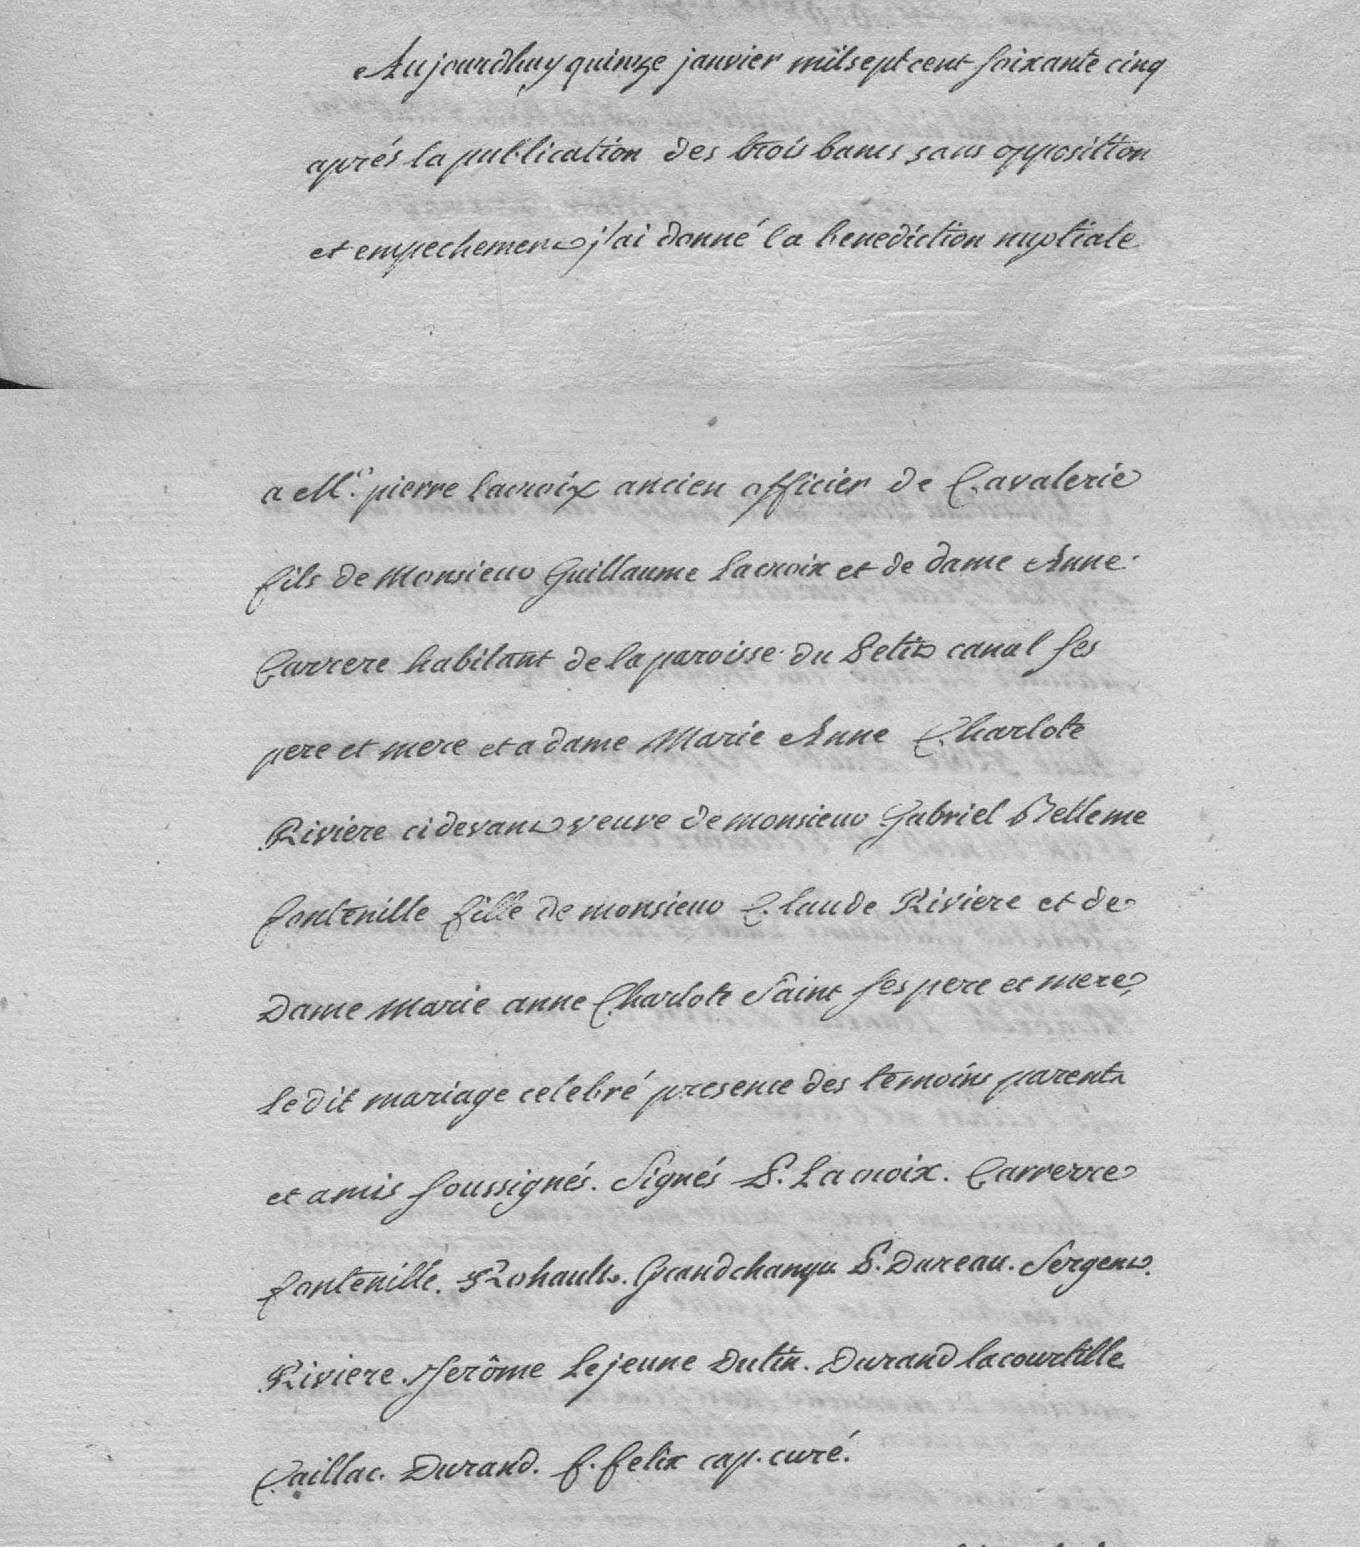 Aujourdhuy quinze janvier mil sept cent soixante cinq
aprés la publication des trois bancs sans opposition
et empechement j'ai donné la benediction nuptiale
a Mr. pierre Lacroix ancien officier de Cavalerie
fils de Monsieur Guillaume Lacroix et de dame Anne
Carrere habitant de la paroisse du Petit canal ses
pere et mere et a dame Marie Anne Charlote
Riviere ci devant veuve de monsieur Gabriel Belleme
fontenille fille de monsieur Claude Riviere et de
Dame marie anne Charlote Saint ses pere et mere,
Le dit mariage celebré presence des temoins parents
et amis soussignés. Signés P. Lacroix. Carrerre
fontenille. Rohault. Grandchamp P. Dureau. Sergent.
Riviere. Jerôme Lejeune Dutin. Durand lacourtille
Caillac. Durand. f. felix cap. curé.